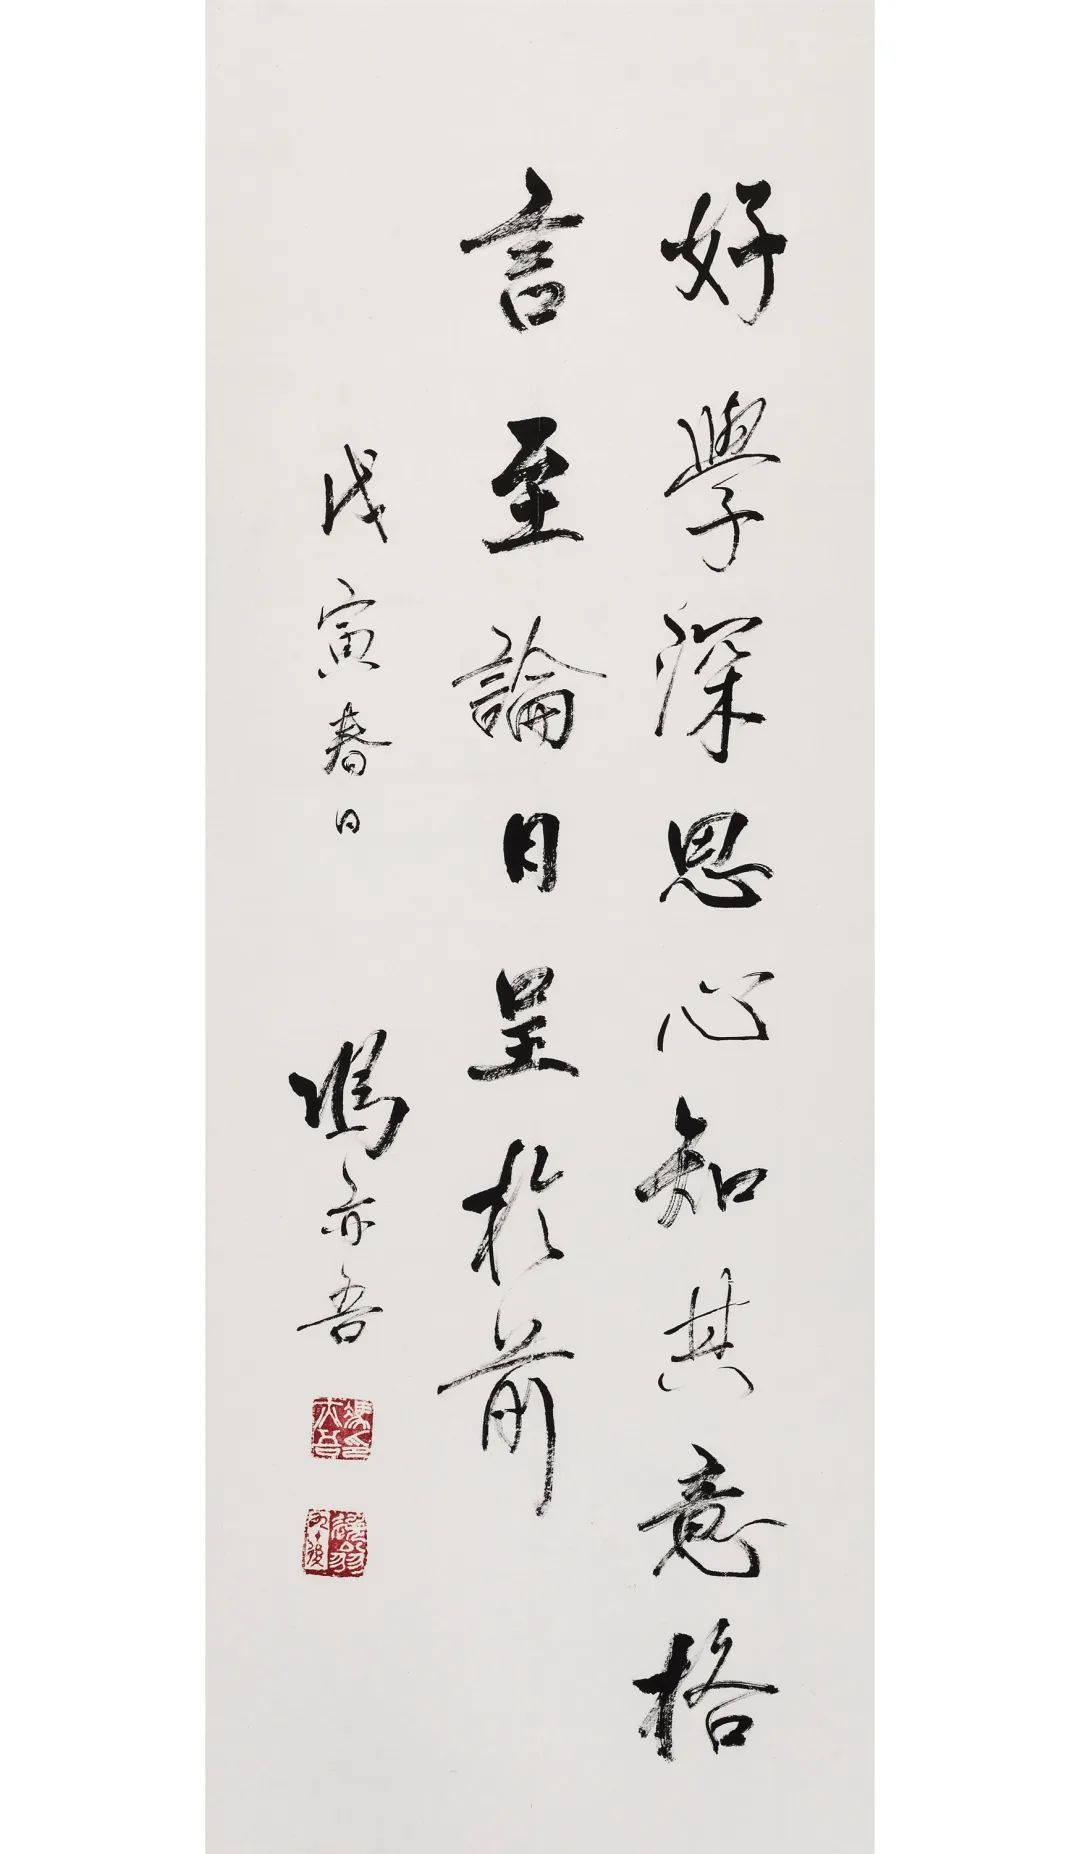 好學深思心知其意格
言至論日呈於前
戊寅春日
馮亦吾
馮亦吾印